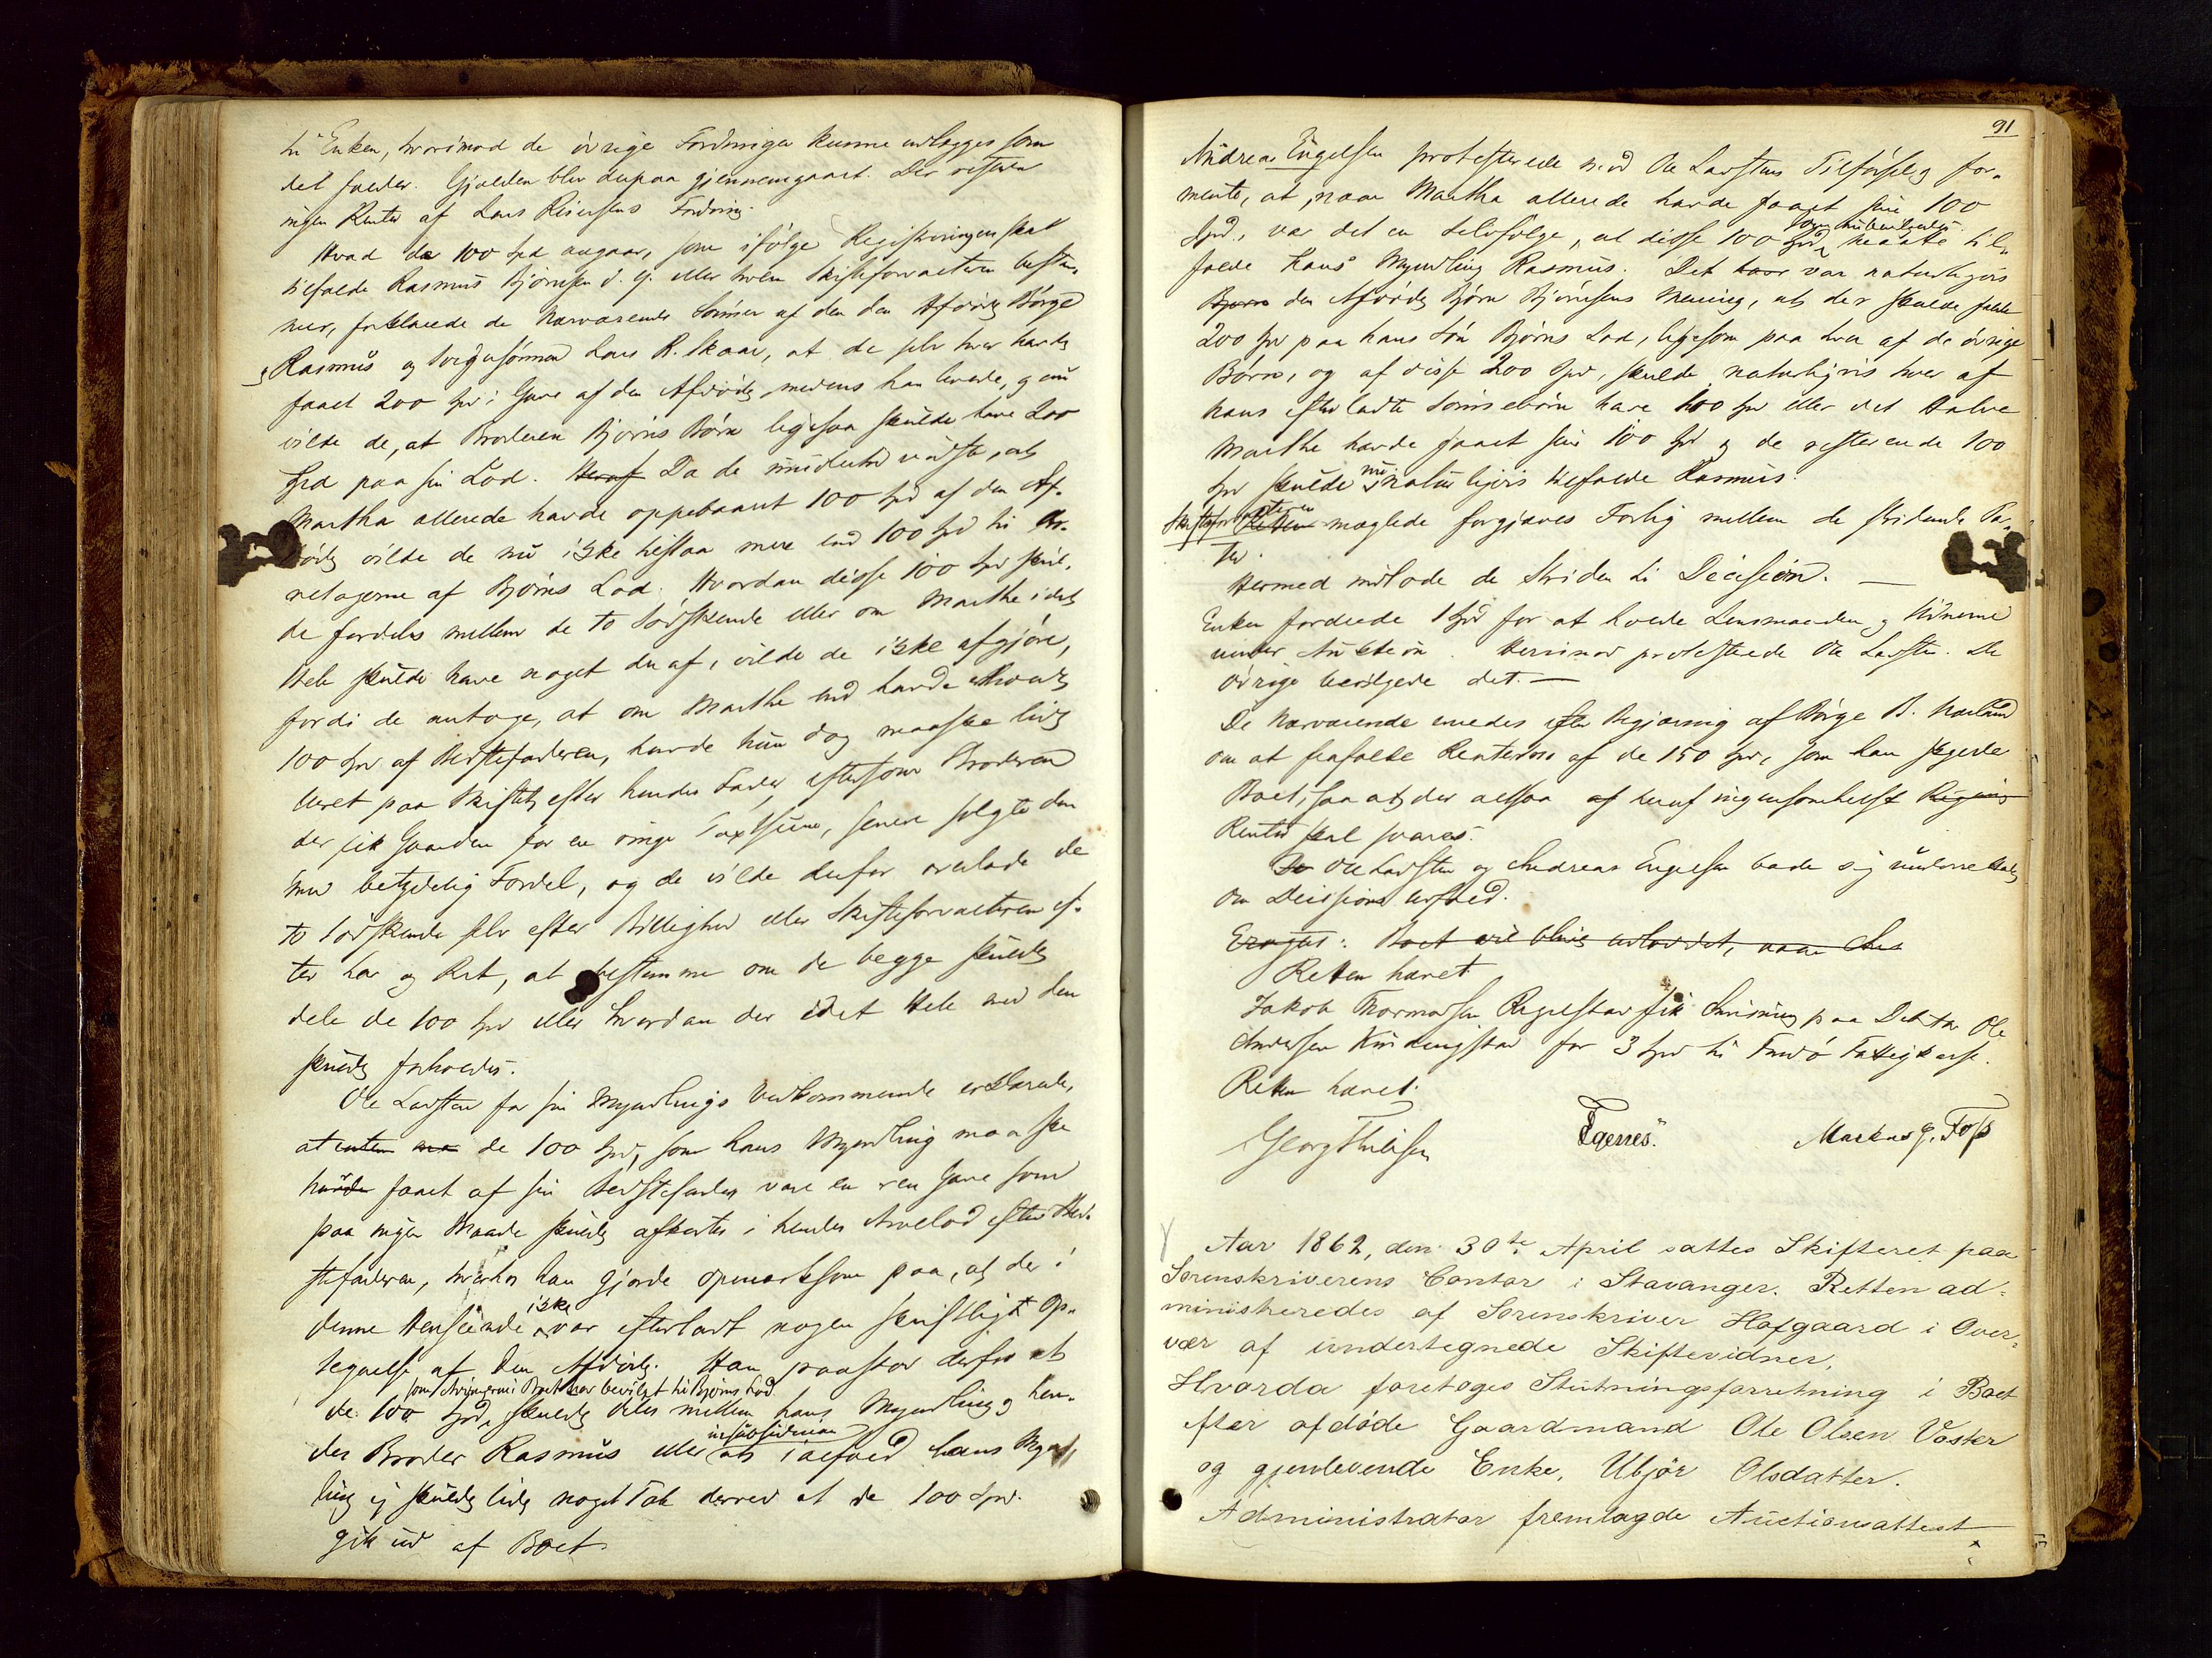 til Enken, hvorimod de övrige Fordringer kunne udlægges som
det falder. Gjælden blev derpaa gjennemgaaet. Der
ingen Renter af Lars Fordring.
Hvad de 100 Spd angaar, som ifölge Registreringen skal
tilfalde Rasmus Björnsen d. y. eller hvem Skifteforvalteren bestem,
mer, forklarede de nærværende Sönner af den Afdöde Börge
Rasmus og Svigersönnen Lars R. Skaar, at de selv hver havde
faaet 200 Spd i Gave af den Afdöde, medens han levede, og nu
vilde de, at Broderen Björns Börn ligesaa skulde have 200
Spd paa sin Lod. Heraf Da de imidlertid vidste, at
Martha allerede havde oppebaaret 100 Spd af den Af-
döde vilde de nu ikke tilstaa mere end 100 Spd til
af Björns Lod. Hvordan disse 100 Spd skul-
de fordeles mellem de to Södskende eller om Marthe i det
Hele skulde have noget deraf, vilde de ikke afgjöre,
fordi de antoge, at om Marthe end havde
100 Spd af Bedstefaderen, havde hun dog maaske lidt
paa Skiftet efter hendes Fader, eftersom Broderen
der fik Gaarden for en ringe Taxtsum, senere solgte den
med betydelig Fordel, og de vilde derfor overlade de
to Södskende selv efter Billighed eller Skifteforvalteren ef-
ter Lov og Ret, at bestemme om de begge skulde
dele de 100 Spd eller hvordan der i det Hele med dem
skulde forholdes.
Ole Ladsten for sin Myndlings Vedkommende erklærede,
at de 100 Spd, som hans Myndling maaske
havde faaet af sin Bedstefader var en ren Gave som
paa ingen Maade skulde afkortes i hendes Arvelod efter Bed-
stefaderen, hvorhos han gjorde opmærksom paa, at der i
denne Henseende ikke var efterladt nogen skriftligt Op-
tegnelse af den Afdöde. Han paastod derfor at
som Arvingerne i Boet har bevilget til Björns Lod
de 100 Spd, skulde deles mellem hans Myndling og hen-
des Broder Rasmus eller in subsidium at i alfald hans Mynd-
ling ej skulde lide noget Tab derved at de 100 Spd.
gik ud af Boet.
91
Andreas Engelsen protesterede mod Ole Ladstens Tilförsel og for-
mente, at, naar Martha allerede havde faaet sine 100
Spd., var det en Selvfölge, at disse 100 Spd maatte til-
falde hans Myndling Rasmus. Det var naturligvis
den Afdöde Björn Björnsens Mening, at der skulde falde
200 Spd paa hans Sön Björns Lod, ligesom paa hver af de övrige
Börn, og af disse 200 Spd, skulde naturligvis hver af
hans efterladte Sönnebörn have 100 Spd eller det Halve
Marthe havde faaet sine 100 Spd og de resterende 100
Spd skulde nu naturligvis tilfalde Rasmus.
Skifteforvalteren mæglede forgjæves Forlig mellem de stridende Par-
ter.
Hermed indlode de Striden til Decision. —
Enken fordrede 1 Spd for at holde Lensmanden og Vidnerne
under Auktion. Herimod protesterede Ole Ladsten. De
övrige bevilgede det. —
De nærværende enedes efter Begjæring af Börge B. Haaland
om at frafalde Renterne af de 150 Spd, som han skyldte
Boet, saa at der altsaa af heraf ingensomhelst
Renter skal svares.
De Ole Ladsten og Andreas Engelsen bade sig underrettede
om Decisions Afsted.
Boet vil blive udloddet, naar
Retten hævet
Jakob Thormodsen Regelstad fik Anvisning paa Debitor Ole
Andersen Kindingstad for 3 Spd til Findö Fattigkasse.
Retten hævet.
Georg Thilesen Egenes. Markus G. Foss
Aar 1862, den 30te April sattes Skifteret paa
Sorenskriverens Contor i Stavanger. Retten ad-
ministreredes af Sorenskriver Hofgaard i Over-
vær af undertegnede Skiftevidner.
Hvorda foretoges Slutningsforretning i Boet
efter afdöde Gaardmand Ole Olsen Vaster
og gjenlevende Enke, Ubjör Olsdatter.
Administrator fremlagde Auctionsattest